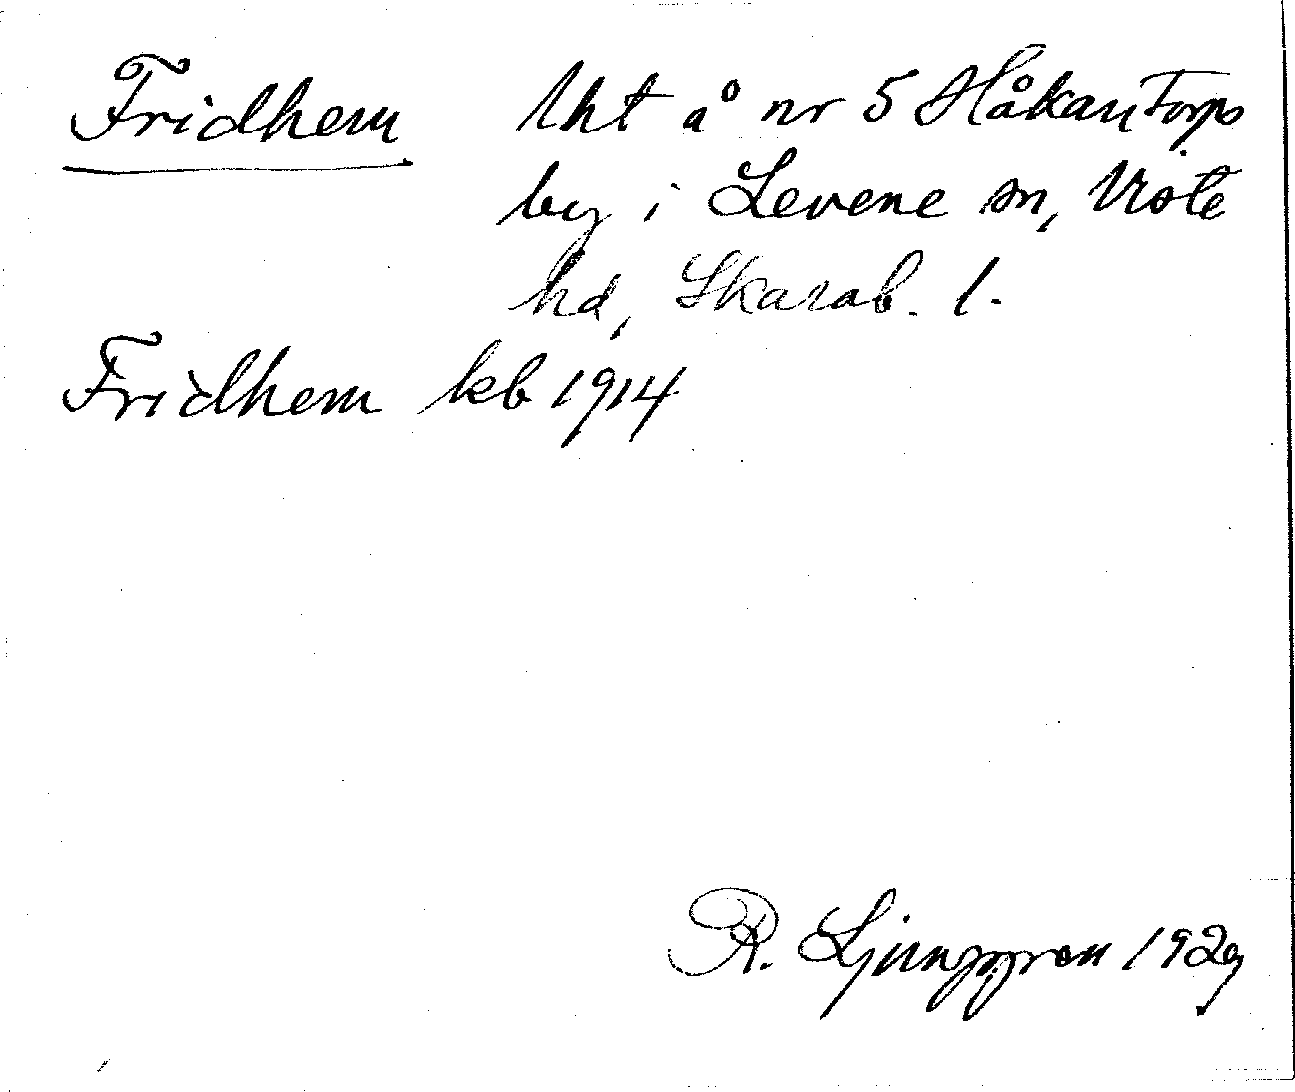 Fridhem lht å nr 5 Håkantorps
by i Levene sn, Viste
hd, Skarab. l.
Fridhem kb 1914
R. Ljunggren 1929